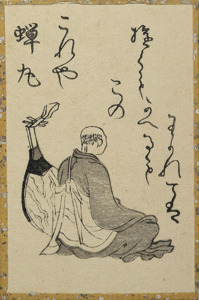 蝉丸
これや
この
かへるも
わかれては